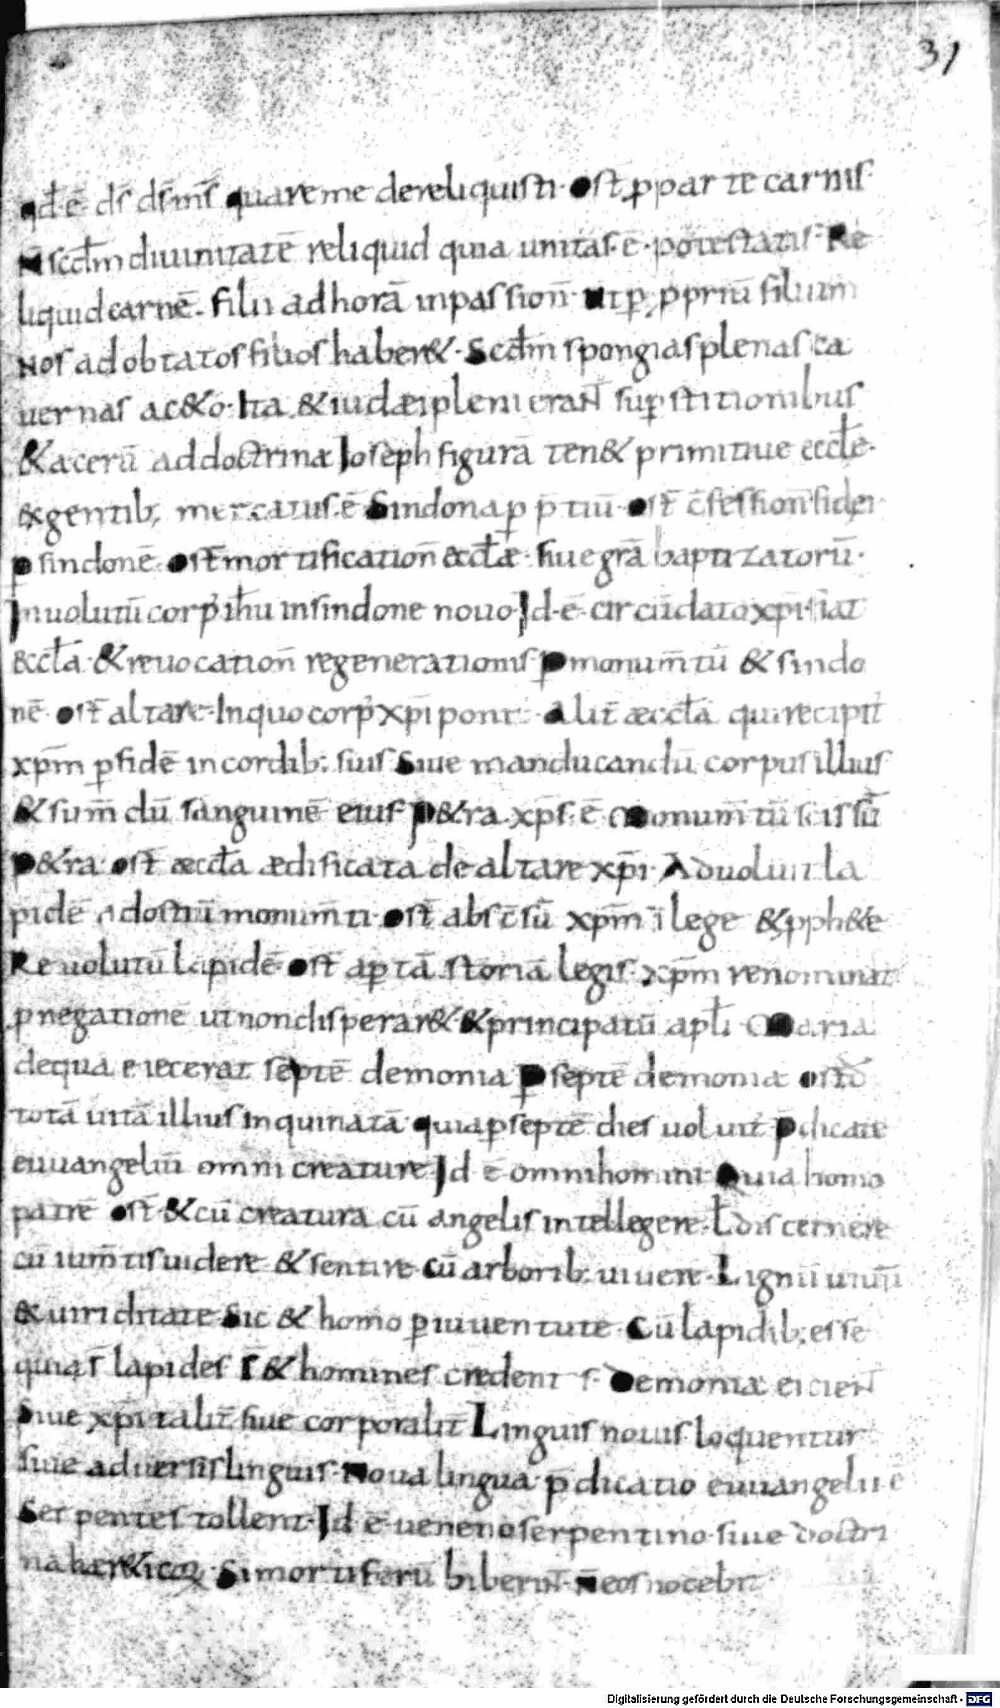 31
qd ē ds̄ ds̄ ms̄ quare me dereliquisti · ost̄ p̱ parte carnis·
N scd̄m diuinitatē reliquid quia unitas ē · potestatis · Re
liquid carnē · filii ad horā in passion̄ · ut p̱ p̱priū filium
Nos adobtatos filios haber& · Scd̄m spongias plenas ca
uernas ac&o · Ita & iudæi pleni erant sup̱stitionibus
& acetū ad doctrinæ Ioseph figurā ten& primitiue eccłe·
ex gentib; mercatus ē Sindona p̱ p̄tiū · ost̄ c̄fession̄ fidei·
p̱ sindonē · ost̄ mortification̄ æccłæ · siue grā baptizatorū·
Inuolutū corp̱ ihū in sindone nouo · Id ē circūdato xp̄i
æccłā · & reuocation̄ regenerationis p̱ monum̄tū & sindo
nē ost̄ altare · In quo corp̱ xp̄i pont̄ · alit̄ æccła qui recipit
xp̄m p̱ fidē in cordib; suis siue manducandū corpus illius
& sum̄dū sanguinē eius · P&ra xp̄s ē Monum̄tū scissū
P&ra ost̄ æccła ædificata de altare xp̄i · Aduoluit la
pidē ad ostiū monum̄ti · ost̄ absc̄sū xp̄m ī lege & pph&e
Reuolutū lapidē · ost̄ ap̱tā storiā legis · xp̄m renominat
p̱ negationē ut non disperar& & principatū apłi Maria
de qua eiecerat septē demonia p̱ septē demonia ost̄
totā uitā illius inquinatā · quia p̱ septē dies uoluit p̄dicate
euuangeliū omni creature Id ē omni homini · Quia homo
partē ost̄ · & cū creatura cū angelis intellegere · ł discernere
cū ium̄tis uidere & sentire · cū arborib; uiuere · Lignū uiuū
& uiriditate sic & homo p̱ iuuentute · Cū lapidib; esse
quia s̄ lapides s̄ & homines credent s̄ · Demonia eicient
siue xp̄i talit̄ siue corporalit̄ Linguis nouis loquentur
siue aduersis linguis · Noua lingua p̄dicatio euuangelii ē
Serpentes tollent · Id ē ueneno serpentino · siue doctri
na her&icoꝝ · Si mortiferū biberint · N̄ eos nocebit
Digitalisierung gefördert durch die Deutsche Forschungsgemeinschaft - DFG